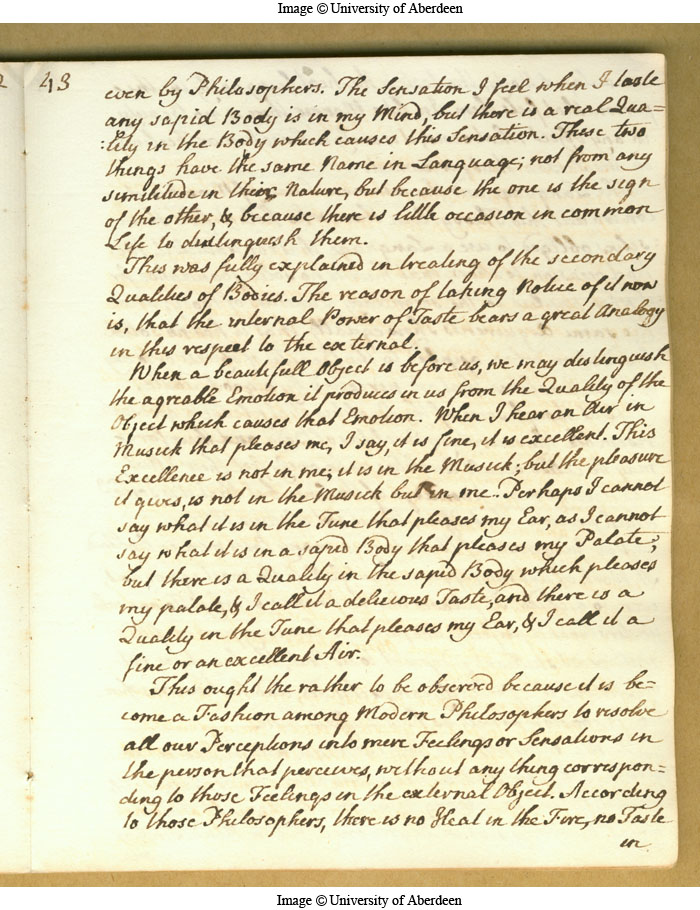 Image © University of Aberdeen
2 43
even by Philosophers. The Sensation I feel when I taste
any sapid Body is in my Mind, but there is a real Qua=
:lity in the Body which causes this Sensation. These two
things have the same Name in Language; not from any
similitude in their Nature, but because the one is the sign
of the other, & because there is little occasion in common
Life to distinguish them.
This was fully explained in treating of the secondary
Qualities of Bodies. The reason of taking Notice of it now
is, that the internal Power of Taste bears a great Analogy
in this respect to the external.
When a beautifull Object is before us, we may distinguish
the agreable Emotion it produces in us from the Quality of the
Object which causes that Emotion. When I hear an Air in
Musick that pleases me, I say, it is fine, it is excellent. This
Excellence is not in me; it is in the Musick; but the pleasure
it gives, is not in the Musick but in me. Perhaps I cannot
say what it is in the Tune that pleases my Ear, as I cannot
say what it is in a sapid Body that pleases my Palate;
but there is a Quality in the sapid Body which pleases
my palate, & I call it a delicious Taste, and there is a
Quality in the Tune that pleases my Ear, & I call it a
fine or an excellent Air.
This ought the rather to be observed because it is be=
come a Fashion among Modern Philosophers to resolve
all our Perceptions into mere Feelings or Sensations in
the person that perceives, without any thing correspon=
ding to those Feelings in the external Object. According
to those Philosophers, there is no Heat in the Fire, no Taste
in
Image © University of Aberdeen